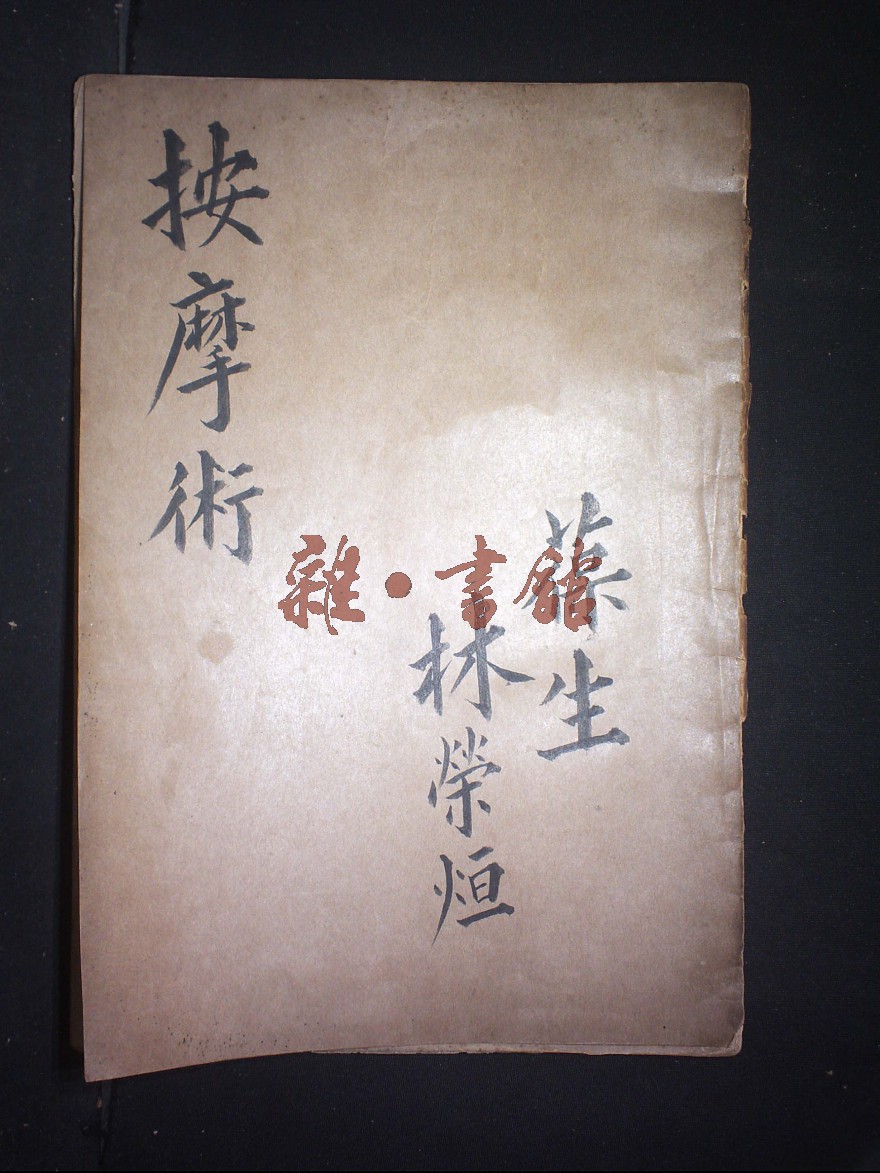 生
林榮烜
按摩術
雜·書館